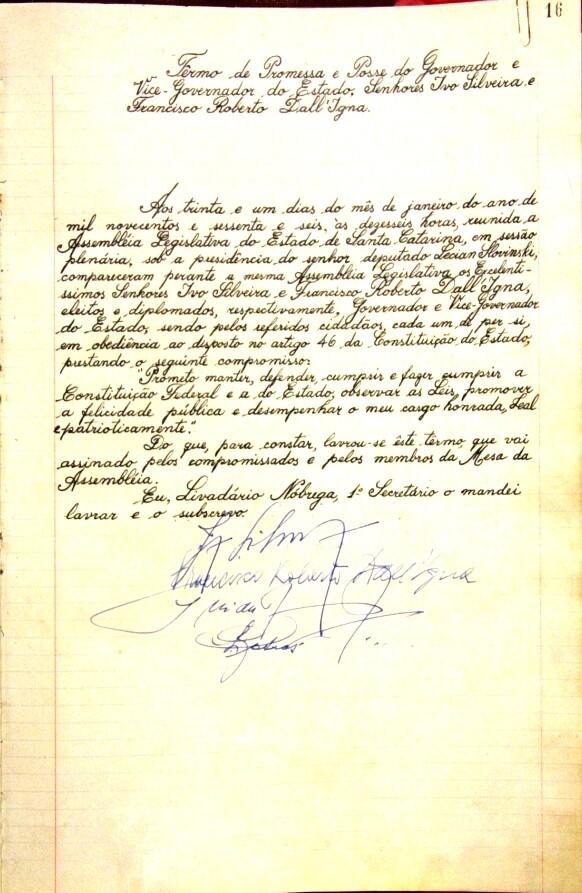 16
Termo de Promessa e Posse do Governador e
Vice-Governador do Estado, Senhores Ivo Silveira e
Francisco Roberto Dall'Igna.
Aos trinta e um dias do mês de janeiro do ano de
mil novecentos e sessenta e seis, às dezesseis horas, reunida a
Assembléia Legislativa do Estado de Santa Catarina, em sessão
plenária, sob a presidência do senhor deputado Lecian Slovinski,
compareceram perante a mesma Assembléia Legislativa os Excelentí-
ssimos Senhores Ivo Silveira e Francisco Roberto Dall'Igna,
eleitos e diplomados, respectivamente, Governador e Vice-Governador
do Estado, sendo pelos referidos cidadãos, cada um de per si,
em obediência ao disposto no artigo 46 da Constituição do Estado,
prestando o seguinte compromisso:
"Prometo manter, defender, cumprir e fazer cumprir a
Constituição Federal e a do Estado, observar as Leis, promover
a felicidade pública e desempenhar o meu cargo honrada, Leal
e patrioticamente".
Do que, para constar, lavrou-se êste têrmo que vai
assinado pelos compromissados e pelos membros da Mesa da
Assembléia.
Eu, Livadário Nóbrega, 1º Secretário o mandei
lavrar e o subscrevo.
Francisco Roberto Dall'Igna